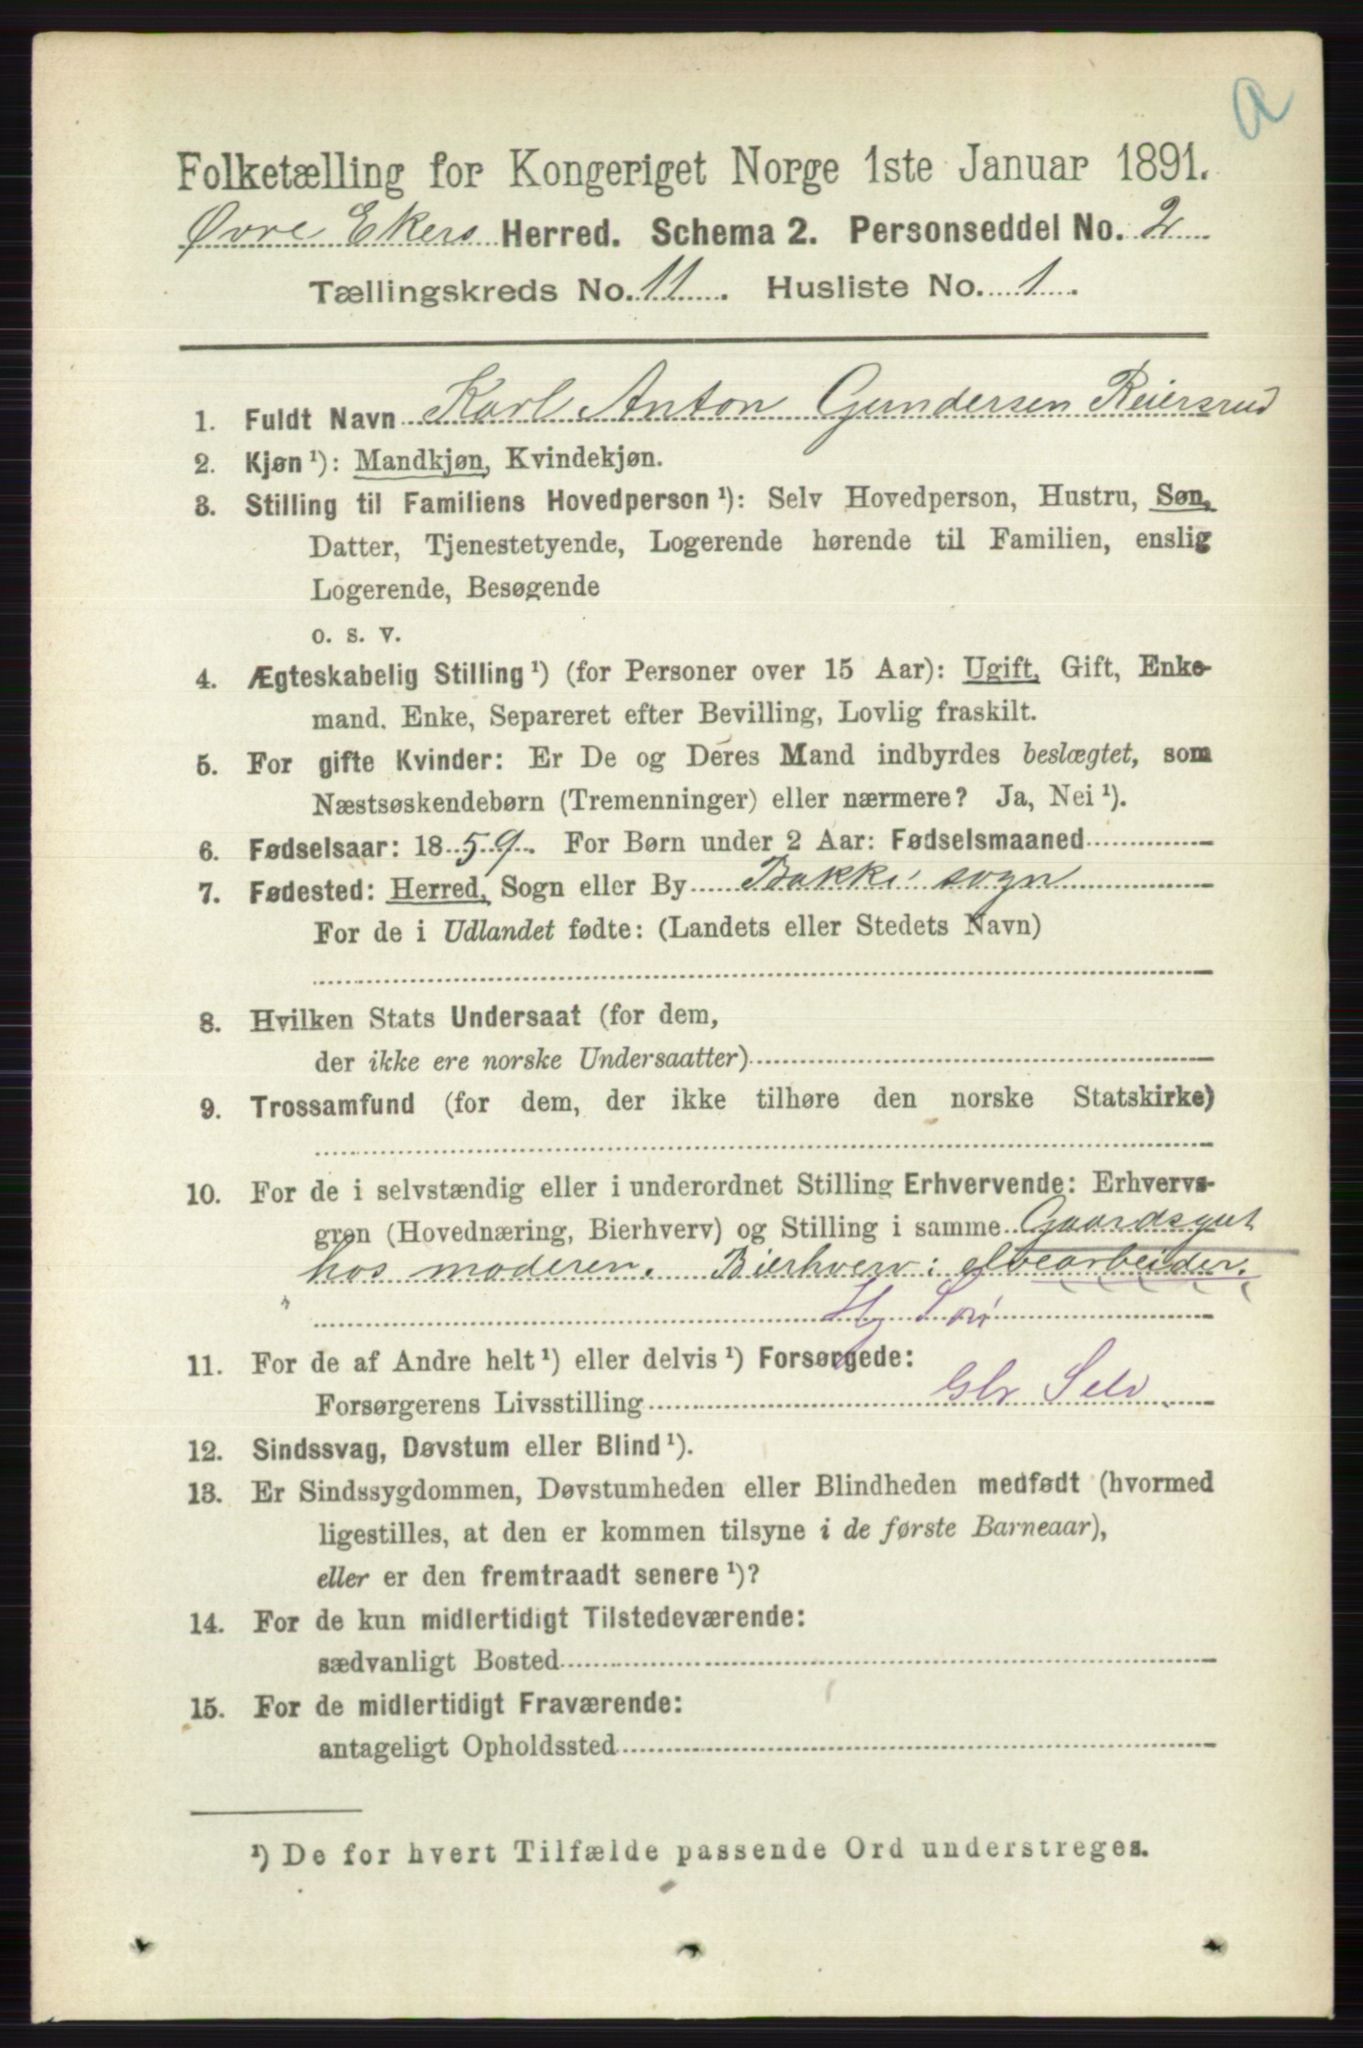 a
Folketælling for Kongeriget Norge 1ste Januar 1891.
Øvre Ekers Herred. Schema 2. Personseddel No. 2
Tællingskreds No. 11. Husliste No. 1.
1. Fuldt Navn Karl Anton Gundersen Reiersrud
2. Kjøn ¹): Mandkjøn, Kvindekjøn.
3. Stilling til Familiens Hovedperson ¹): Selv Hovedperson, Hustru, Søn,
Datter, Tjenestetyende, Logerende hørende til Familien, enslig
Logerende, Besøgende
o. s. v.
4. Ægteskabelig Stilling ¹) (for Personer over 15 Aar): Ugift, Gift, Enke-
mand. Enke, Separeret efter Bevilling, Lovlig fraskilt.
5. For gifte Kvinder: Er De og Deres Mand indbyrdes beslægtet, som
Næstsøskendebørn (Tremenninger) eller nærmere? Ja, Nei ¹).
6. Fødselsaar: 1859. For Børn under 2 Aar: Fødselsmaaned
7. Fødested: Herred, Sogn eller By Bakke sogn
For de i Udlandet fødte: (Landets eller Stedets Navn)
8. Hvilken Stats Undersaat (for dem,
der ikke ere norske Undersaatter)
9. Trossamfund (for dem, der ikke tilhøre den norske Statskirke)
10. For de i selvstændig eller i underordnet Stilling Erhvervende: Erhvervs-
gren (Hovednæring, Bierhverv) og Stilling i samme Gaardsgut
hos moderen. Bierhverv: elvearbeider.
11. For de af Andre helt ¹) eller delvis ¹) Forsørgede:
Forsørgerens Livsstilling Gbr Selv
12. Sindssvag, Døvstum eller Blind ¹).
13. Er Sindssygdommen, Døvstumheden eller Blindheden medfødt (hvormed
ligestilles, at den er kommen tilsyne i de første Barneaar),
eller er den fremtraadt senere ¹)?
14. For de kun midlertidigt Tilstedeværende:
sædvanligt Bosted
15. For de midlertidigt Fraværende:
antageligt Opholdssted
¹) De for hvert Tilfælde passende Ord understreges.